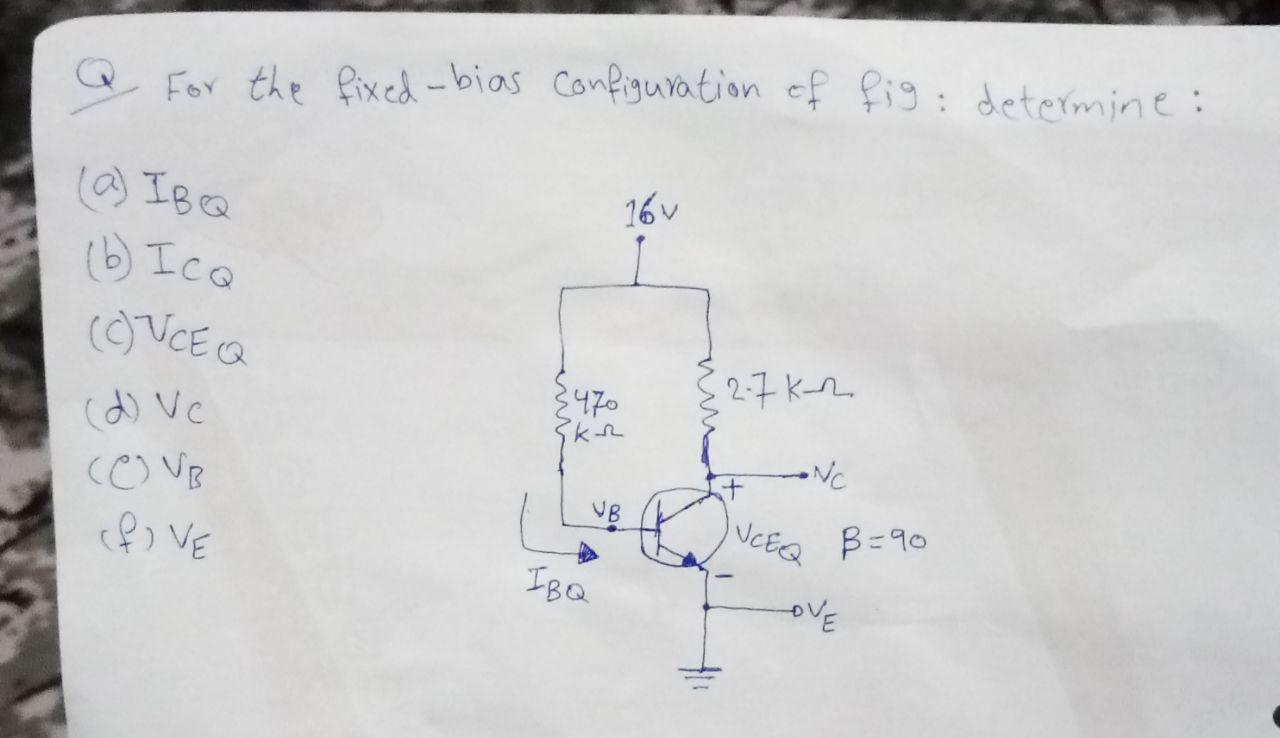 Q For the fixed-bias configuration of fig: determine:
(a) IBQ
(b) ICQ
(c) VCEQ
(d) VC
(e) VB
(f) VE
16V
470
KΩ
2.7 KΩ
VC
+
VB
VCEQ β=90
-
IBQ
VE